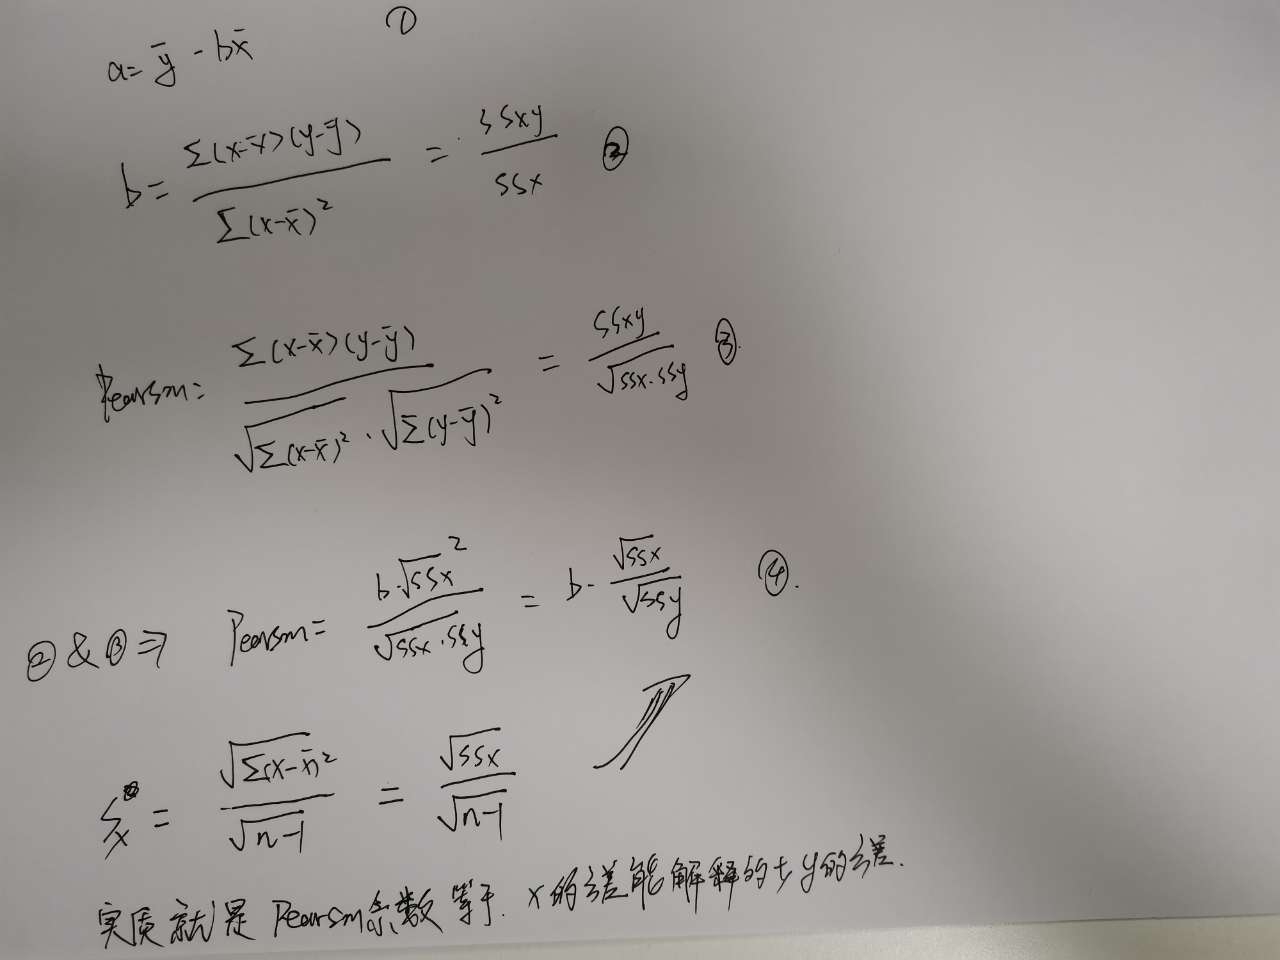 ①
a = ȳ - bx̄
b = Σ(x-x̄)(y-ȳ) / Σ(x-x̄)² = SSxy / SSx ②
Pearson = Σ(x-x̄)(y-ȳ) / √Σ(x-x̄)² · √Σ(y-ȳ)² = SSxy / √SSx·SSy ③.
②&③ ⇒ Pearson = b·√SSx² / √SSx·SSy = b· √SSx / √SSy ④.
Sx = √Σ(x-x̄)² / √n-1 = √SSx / √n-1
实质就是 Pearson系数等于. x的差能解释的 y的差.